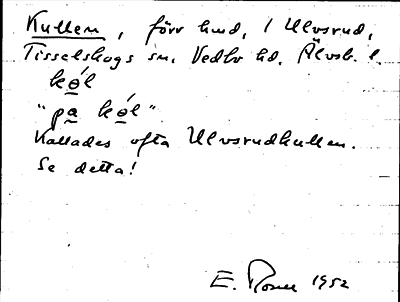 Kullen, förr hmd, i Ulvsrud,
Tisselskogs sn. Vedbo hd. Älvsb. l.
kól
"pa kól".
Kallades ofta Ulvsrudkullen.
Se detta!
E. Rosell 1952